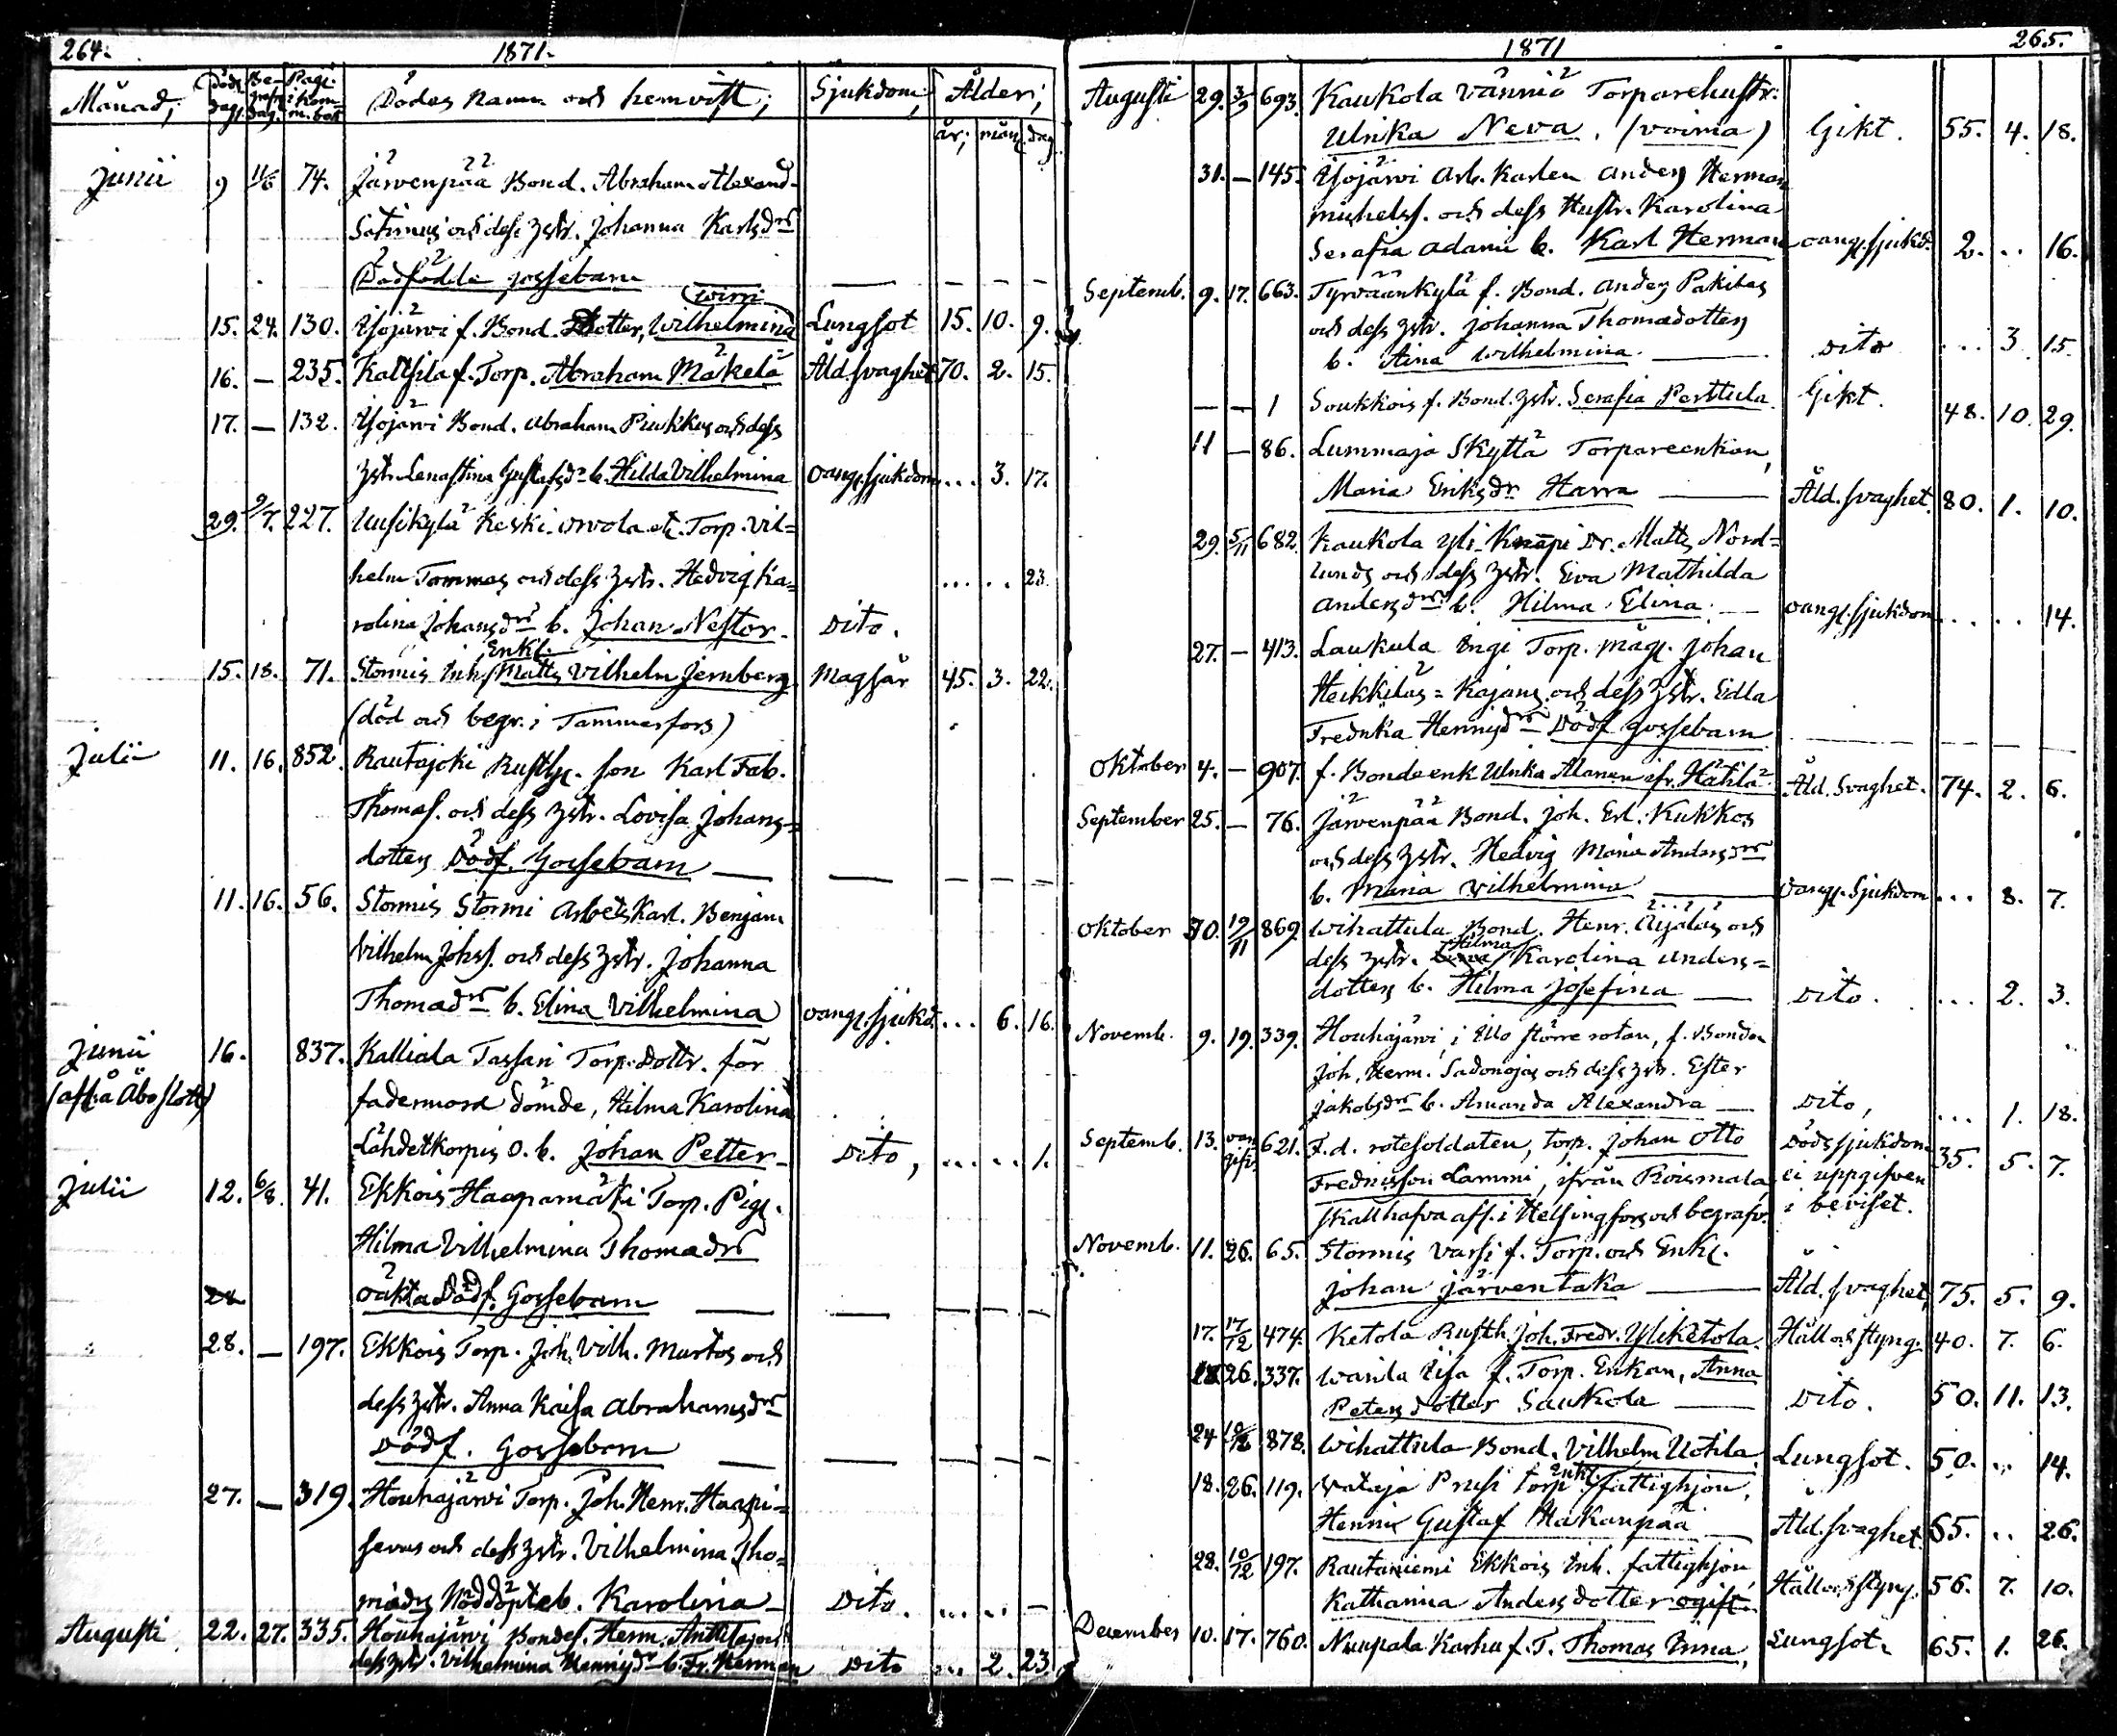 264. 1871.
Månad; Död. dag. Be-graf. dag. Pagi. i kom-m. bok Dödes namn och hemvist; Sjukdom; Ålder;
år; mån; dag.
Junii 9 11/6 74. Järvenpää Bond. Abraham Alexand.
Satimus och dess hstr. Johanna Karlsdrs
Dödfödde gossebarn — — — —
wirri
15. 24. 130. Ysojärvi f. Bond. Dotter, Wilhelmina Lungsot 15. 10. 9.
16. — 235. Kallsila f. Torp. Abraham Mäkelä Åld.svaghet 70. 2. 15.
17. — 132. Ysojärvi Bond. Abraham Piukkus och dess
hstr. Lenastina Gustafsdrs b. Hilda Vilhelmina oang.sjukdom ... 3. 17.
29. 9/7. 227. Uusikylä Keski. orvola Torp. Vil=
helm Tommas och dess hstr. Hedvig Ka= .... . 23.
rolina Johansdrs b. Johan Nestor. Dito.
Enkl.
15. 18. 71. Stormis Inh. Matts Vilhelm Jernberg Magsår 45. 3. 22.
(död och begr. i Tammerfors)
Julii 11. 16. 852. Rautajoki Rusth. son Karl Fab.
Thomas. och dess hstr. Lovisa Johans=
dotters Dödf. Gossebarn — — — — —
11. 16. 56. Stormis Stormi Arbets Karl. Benjam
Vilhelm Johss. och dess hstr. Johanna
Thomadrs b. Elina Vilhelmina oang.sjukd. ... 6. 16.
Junii 16. 837. Kalliala Tassari Torp. Dottr. för
(afl. å Åbo slott) fadermord dömde, Hilma Karolina
Lähdetkorpis o. b. Johan Petter — Dito, ... .. 1.
Julii 12. 6/8. 41. Ekkois Haapamäki Torp. Pig.
Hilma Vilhelmina Thomadrs
oäkta Dödf. Gossebarn — — — — —
28. — 197. Ekkois Torp. Joh. Vilh. Murtos och
dess hstr. Anna Kaisa Abrahamsdrs
Dödf. Gossebarn — — — — —
27. — 319 Houhajärvi Torp. Joh. Henr. Haapi=
och dess hstr. Vilhelmina Tho=
madrs Nöddöpte b. Karolina — Dito. ... .. —
Augusti 22. 27. 335. Houhajärvi Bondes. Herm. Anttilas och
dess hstr. Vilhelmina Hennigdr b. Fr. Herman Dito ... 2. 23.
1871 265.
Augusti 29. 3/9 693. Kaukola Vänniö Torparehustr.
Ulrika Neva. (voima) Gikt. 55. 4. 18.
31. — 145. Ysojärvi Arb. Karlen Anders Herman
Michelss. och dess Hustr. Karolina
Serafia Adami b. Karl Herman oang.sjukd. 2. .. 16.
Septemb. 9. 17. 663. Tyrväänkylä f. Bond. Anders Pakitas
och dess hstr. Johanna Thomadotters
b. Aina Wilhelmina. — dito ... 3 15.
— — 1 Soukkois f. Bond. hstr. Serafia Perttula. Gikt. 48. 10. 29.
11 — 86. Lummaja Skyttä Torpareenkan,
Maria Eriksdr Harra — Åld.svaghet. 80. 1. 10.
29. 5/11 682. Kaukola Yli-Knäpi Dr. Matts Nord=
lunds och dess hstr. Eva Mathilda
Andersdrs b. Hilma Elina. — oang.sjukdom ... .. 14.
27. — 413. Laukula Torp. måg. Johan
Heikkilas = Kajans och dess hstr. Edla
Fredrika Hennigdrs Dödf. gossebarn — — — —
Oktober 4. — 907. f. Bondeenk Ulrika Alanen ifr. Häkilä. Åld. Svaghet. 74. 2. 6.
September 25. — 76. Järvenpää Bond. Joh. Erl. Kukkos
och dess hstr. Hedvig Maria Andersdrs
b. Maria Vilhelmina — oang. Sjukdom ... 8. 7.
Oktober 30. 19/11 869. Wihattula Bond. Henr. Äijäläs och
Hilma
dess hstr. Karolina Anders=
dotters b. Hilma Josefina — Dito. ... 2. 3.
Novemb. 9. 19. 339. Houhajärvi, i Illo större rotan, f. Bonden
Joh. Herm. Sadonojas och dess hstr. Ester
Jakobsdrs b. Amanda Alexandra — Dito, ... 1. 18.
Septemb. 13. 621. F.d. rotesoldaten, torp. Johan Otto Dödssjukdom 35. 5. 7.
Fredriksson Lammi, ifrån Roismala, ei uppgifven
skall hafva afl. i Helsingfors och begrafv. i beviset.
Novemb. 11. 26. 65. Stormis Varsi f. Torp. och Enkl.
Johan Järventaka — Åld. svaghet, 75. 5. 9.
17. 17/12 474. Ketola Rusth. Joh. Fredr. Yliketola. Håll och styng. 40. 7. 6.
18 26. 337. Wanila f. Torp. Enkan, Anna
Petersdotter Saukola — Dito. 50. 11. 13.
24 10/12 878. Wihattula Bond. Vilhelm Uotila. Lungsot. 50. .. 14.
Enkl.
18. 26. 119. Vataja torp. fattighjon,
Henrik Gustaf Makanpää — Åld.svaghet. 65. .. 26.
28. 10/12 197. Rautaniemi Ekkois Inh. fattighjon,
Katharina Andersdotter ogift. Håll och styng. 56. 7. 10.
December 10. 17. 760. Nuupala Karhu f. T. Thomas Inna, Lungsot. 65. 1. 26.